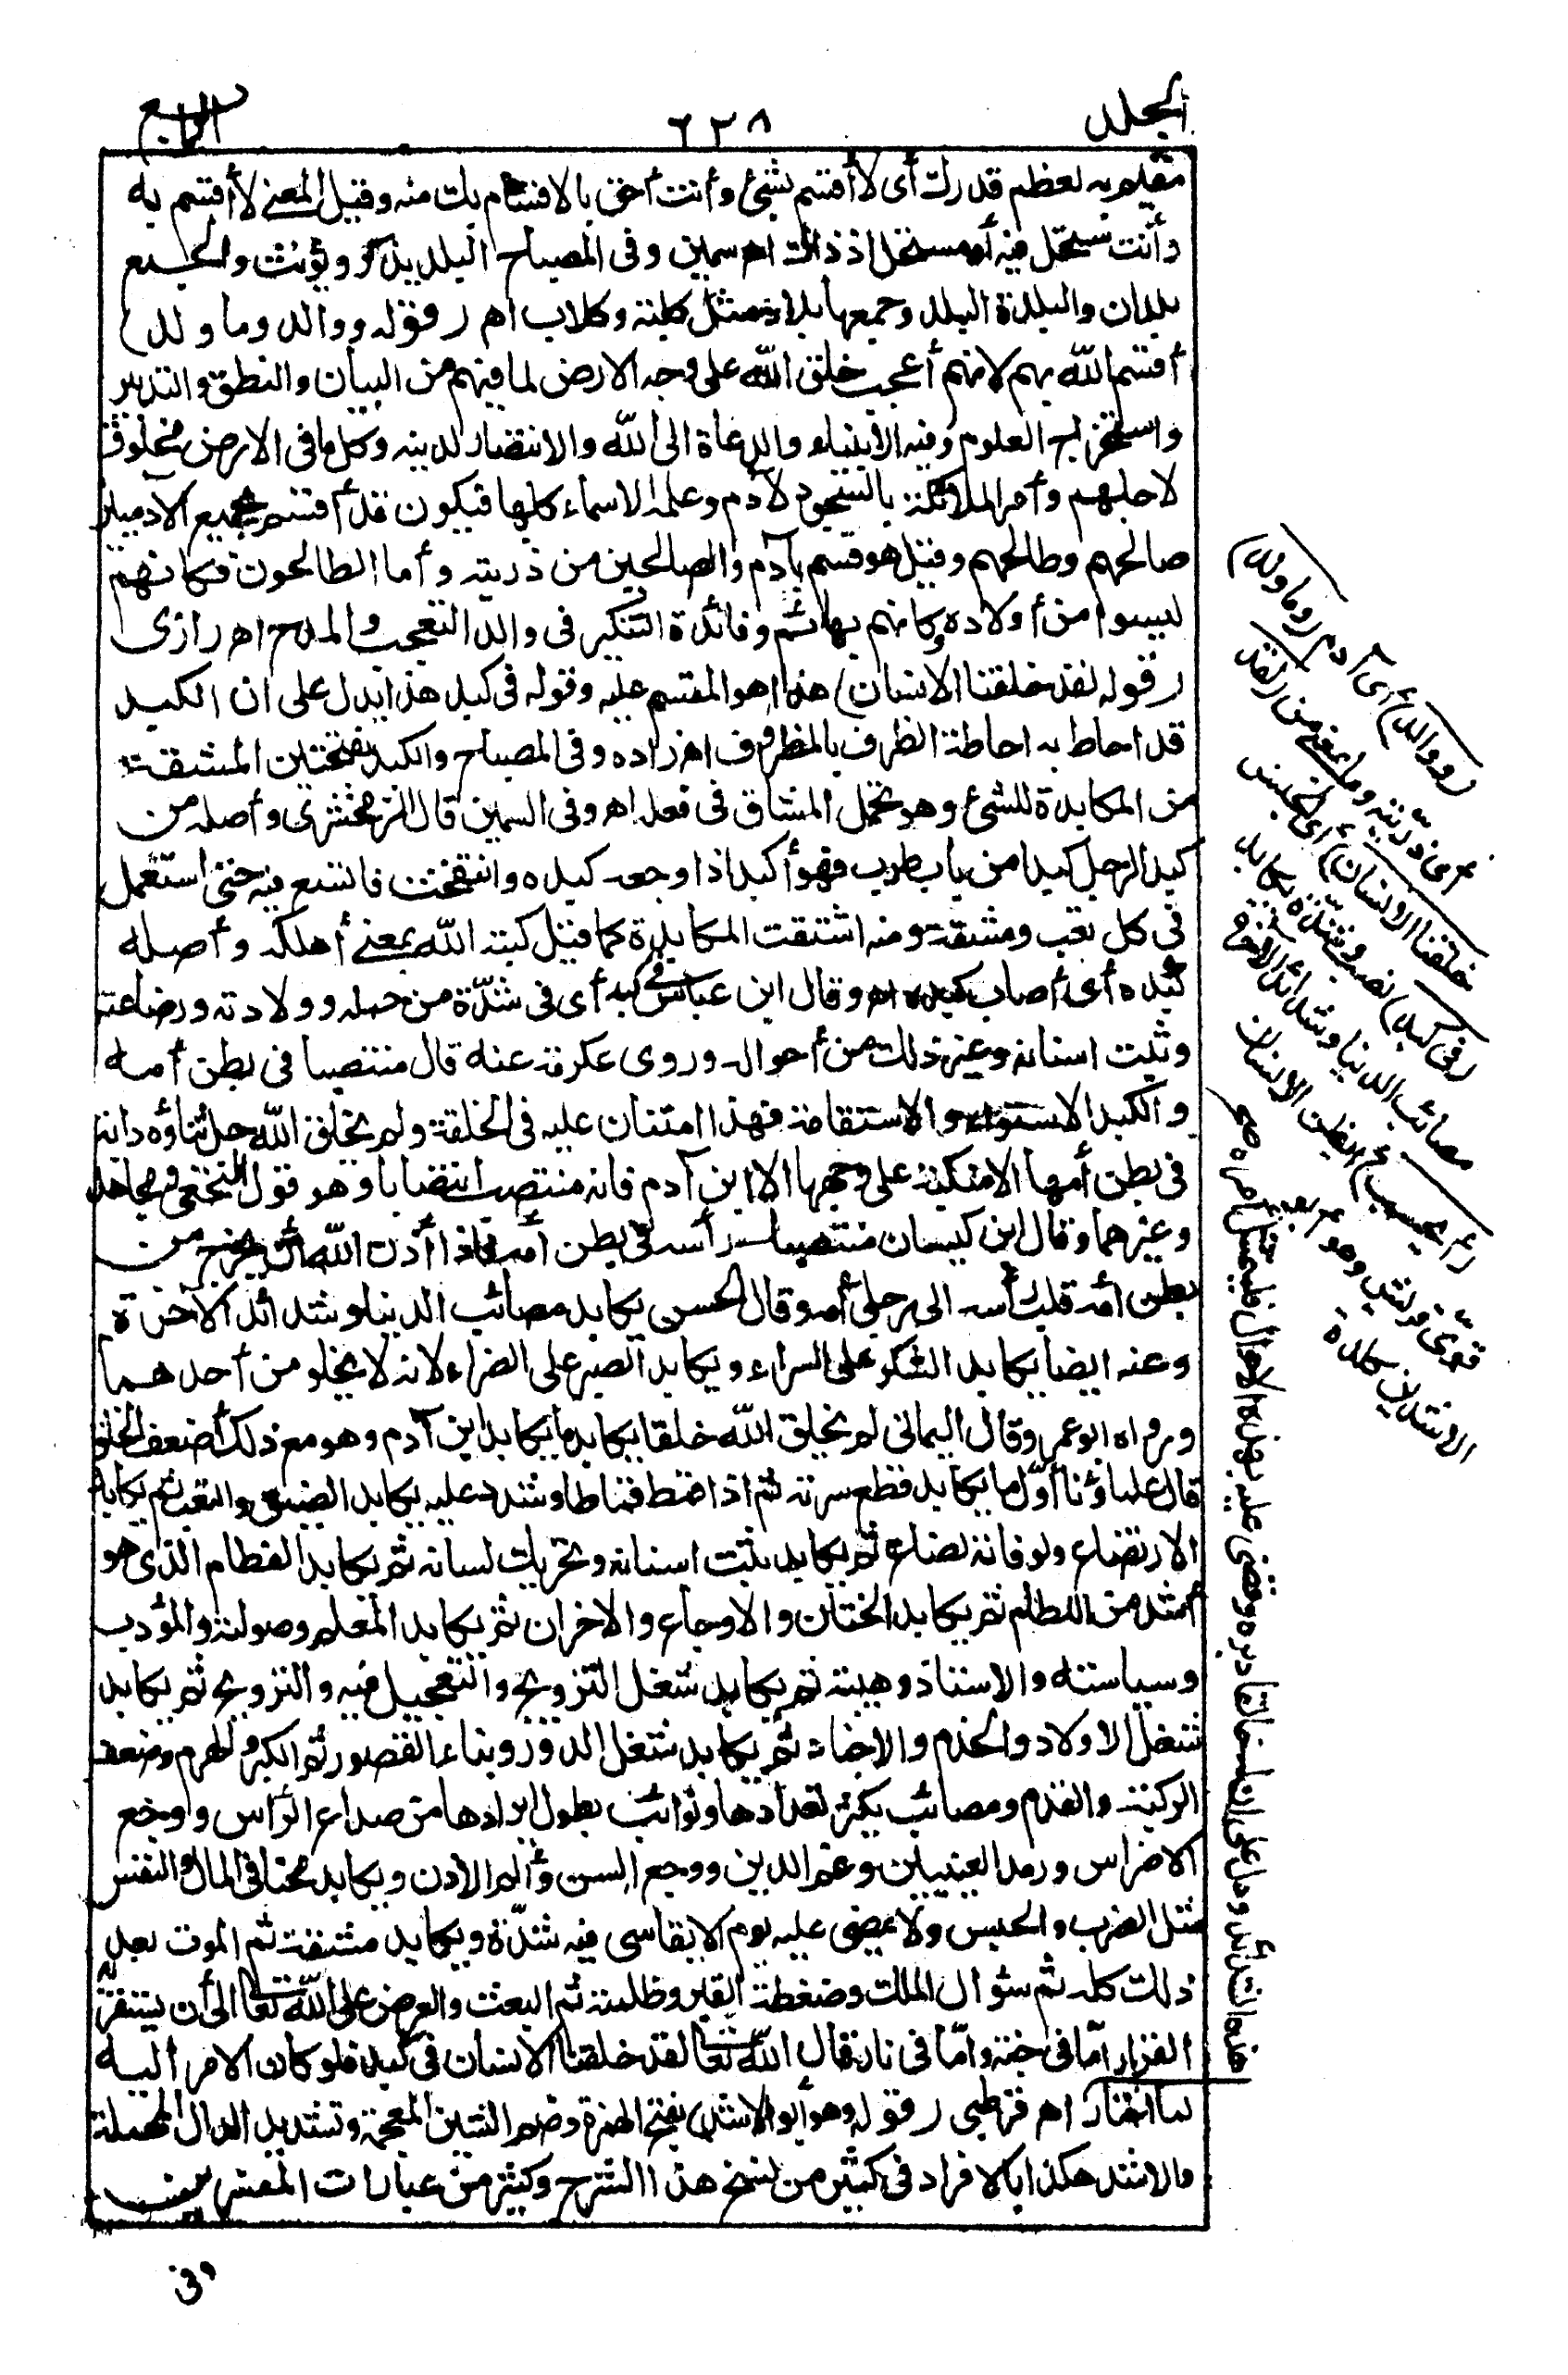 المجلد
٦٢٨
الرابع
مقيم به لعظم قدرك أى لا أقسم بشئ وأنت أحق بالاقسام بك منه وقيل المعنى لا أقسم به
وأنت مستحل فيه أو مستحل اذذاك اه سمين وفى المصباح البلد يذكر ويؤنث والجمع
بلدان والبلدة البلد وجمعها بلاد مثل كلبة وكلاب اه (قوله ووالد وما ولد)
أقسم الله بهم لانهم أعجب خلق الله على وجه الارض لما فيهم من البيان والنطق والتدبير
واستخراج العلوم وفيه الانبياء والدعاة الى الله والانتصار لدينه وكل ما فى الارض مخلوق
لاجلهم وأمر الملائكة بالسجود لآدم وعلمه الاسماء كلها فيكون قد أقسم بجميع الآدميين
صالحهم وطالحهم وقيل هو قسم بآدم والصالحين من ذريته وأما الطالحون فكانهم
ليسوا من أولاده وكانهم بهائم وفائدة التنكير فى والد التعجب والمدح اه رازى
(قوله لقد خلقنا الانسان) هذا هو المقسم عليه وقوله فى كبد هذا يدل على ان الكبد
قد احاط به احاطة الظرف بالمظروف اه زاده وفى المصباح والكبد بفتحتين المشقة
من المكابدة للشئ وهو تحمل المشاق فى فعله اه وفى السمين قال الزمخشرى وأصله من
كبد الرجل كبدا من باب طرب فهو أكبد اذا وجعه كبده وانتفخت فاتسع فيه حتى استعمل
فى كل تعب ومشقة ومنه اشتقت المكابدة كما قيل كبته الله بمعنى أهلكه وأصله
كبده أى أصاب كبده اه وقال ابن عباس فى كبد أى فى شدّة من حمله وولادته ورضاعته
ونبت اسنانه وغير ذلك من أحواله وروى عكرمة عنه قال منتصبا فى بطن أمه
والكبد الاستواء والاستقامة فهذا امتنان عليه فى الخلقة ولم يخلق الله جل ثناؤه دابة
فى بطن أمها الا منكبة على وجهها الا ابن آدم فانه منتصب انتصابا وهو قول النخعى ومجاهد
وغيرهما وقال ابن كيسان منتصبا رأسه فى بطن أمه فاذا أذن الله أن يخرج من
بطن أمه قلب رأسه الى رجلى أمه وقال الحسن يكابد مصائب الدنيا وشدائد الآخرة
وعنه ايضا يكابد الشكر على السراء ويكابد الصبر على الضراء لانه لا يخلو من أحدهما
ورواه ابو عمر وقال اليمانى لم يخلق الله خلقا يكابد ما يكابد ابن آدم وهو مع ذلك أضعف الخلق
قال علماؤنا أوّل ما يكابد قطع سرته ثم اذا قمط قماطا وشد عليه يكابد الضيق والتعب ثم يكابد
الارتضاع ولو فاته لضاع ثم يكابد نبت اسنانه وتحريك لسانه ثم يكابد الفطام الذى هو
أشد من اللطام ثم يكابد الختان والاوجاع والاحزان ثم يكابد المعلم وصولته والمؤدب
وسياسته والاستاذ وهيبته ثم يكابد شغل التزويج والتعجيل فيه والتزويج ثم يكابد
شغل الاولاد والخدم والاجناد ثم يكابد شغل الدور وبناء القصور ثم الكبر والهرم وضعف
الركبة والقدم ومصائب يكثر تعدادها ونوائب يطول ايرادها من صداع الرأس ووجع
الاضراس ورمد العينين وغم الدين ووجع السن وألم الأذن ويكابد محنا فى المال والنفس
مثل الضرب والحبس ولا يمضى عليه يوم الا يقاسى فيه شدّة ويكابد مشقة ثم الموت بعد
ذلك كله ثم سؤال الملك وضغطة القبر وظلمته ثم البعث والعرض على الله تعالى الى أن يستقرّ به
القرار امّا فى جنة وامّا فى نار قال الله تعالى لقد خلقنا الانسان فى كبد فلو كان الامر اليه
لما اختار
هذه الشدائد ودل على ان له خالقا دبره وقضى عليه بهذه الاحوال فليمتثل أمره
اه قرطبى (قوله وهو أبو الاشد) بفتح الهمزة وضم الشين المعجمة وتشديد الدال المهملة
والاشد هكذا بالافراد فى كثير من نسخ هذا الشرح وكثير من عبارات المفسرين
وفى
(ووالد) أى آدم (وما ولد)
أى ذرّيته وما بمعنى من (لقد
خلقنا الانسان) أى الجنس
(فى كبد) نصب وشدّة يكابد
مصائب الدنيا وشدائد الآخرة
(أيحسب) أيظن الانسان
قوىّ قريش وهو أبو
الاشدين كلدة